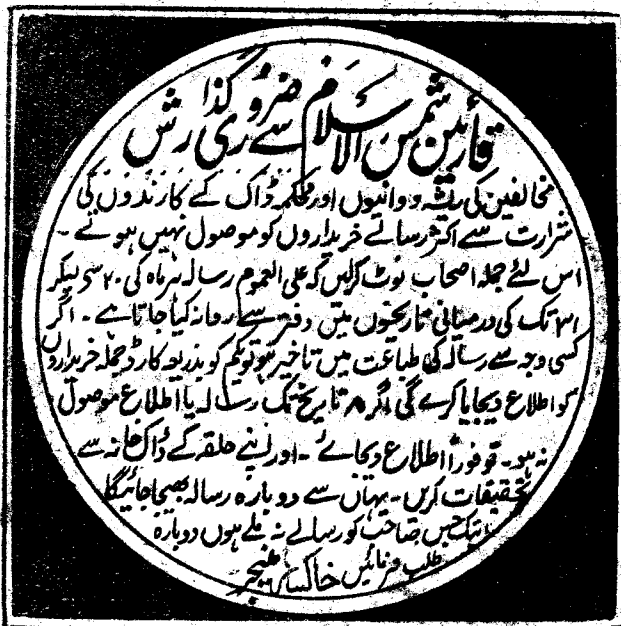 قارئین شمس الاسلام سے ضروری گذارش
مخالفین کی ریشہ دوانیوں اور محکمہ ڈاک کے کارندوں کی
شرارت سے اکثر رسالے خریداروں کو موصول نہیں ہوتے۔
اس لئے جملہ اصحاب نوٹ کرلیں کہ علی العموم رسالہ ہر ماہ کی ۲۰ سی لیکر
۳۱ تک کی درمیانی تاریخوں میں دفتر سے روانہ کیا جاتا ہے۔ اگر
کسی وجہ سے رسالہ کی طباعت میں تاخیر ہو تو یکم کو بذریعہ کارڈ جملہ خریداروں
کو اطلاع دیجایا کرے گی اگر ۸ تاریخ تک رسالہ یا اطلاع موصول
نہ ہو۔ تو فوراً اطلاع دیجائے۔ اور اپنے حلقہ کے ڈاک خانہ سے
تحقیقات کریں۔ یہاں سے دوبارہ رسالہ بھیجا جائیگا
جس صاحب کو رسالے نہ ملے ہوں دوبارہ
طلب فرمائیں خاکسار منیجر